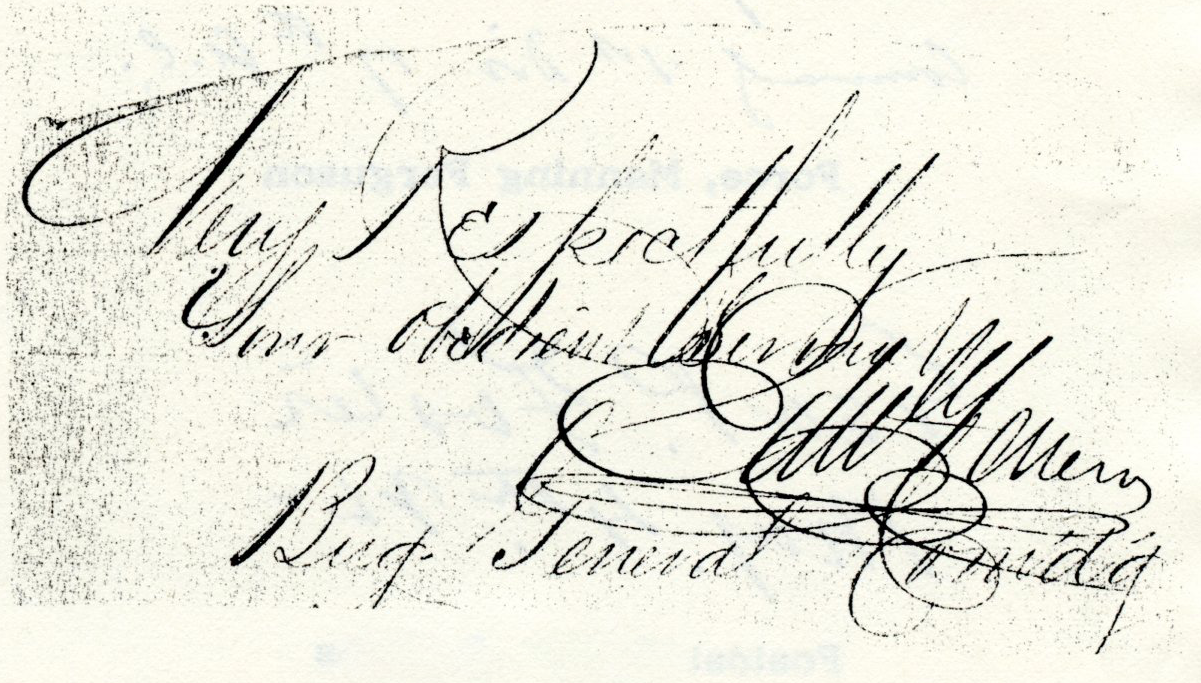 Very Respectfully
Your obedient Servant
Edw Ferrero
Brig General Comd'g